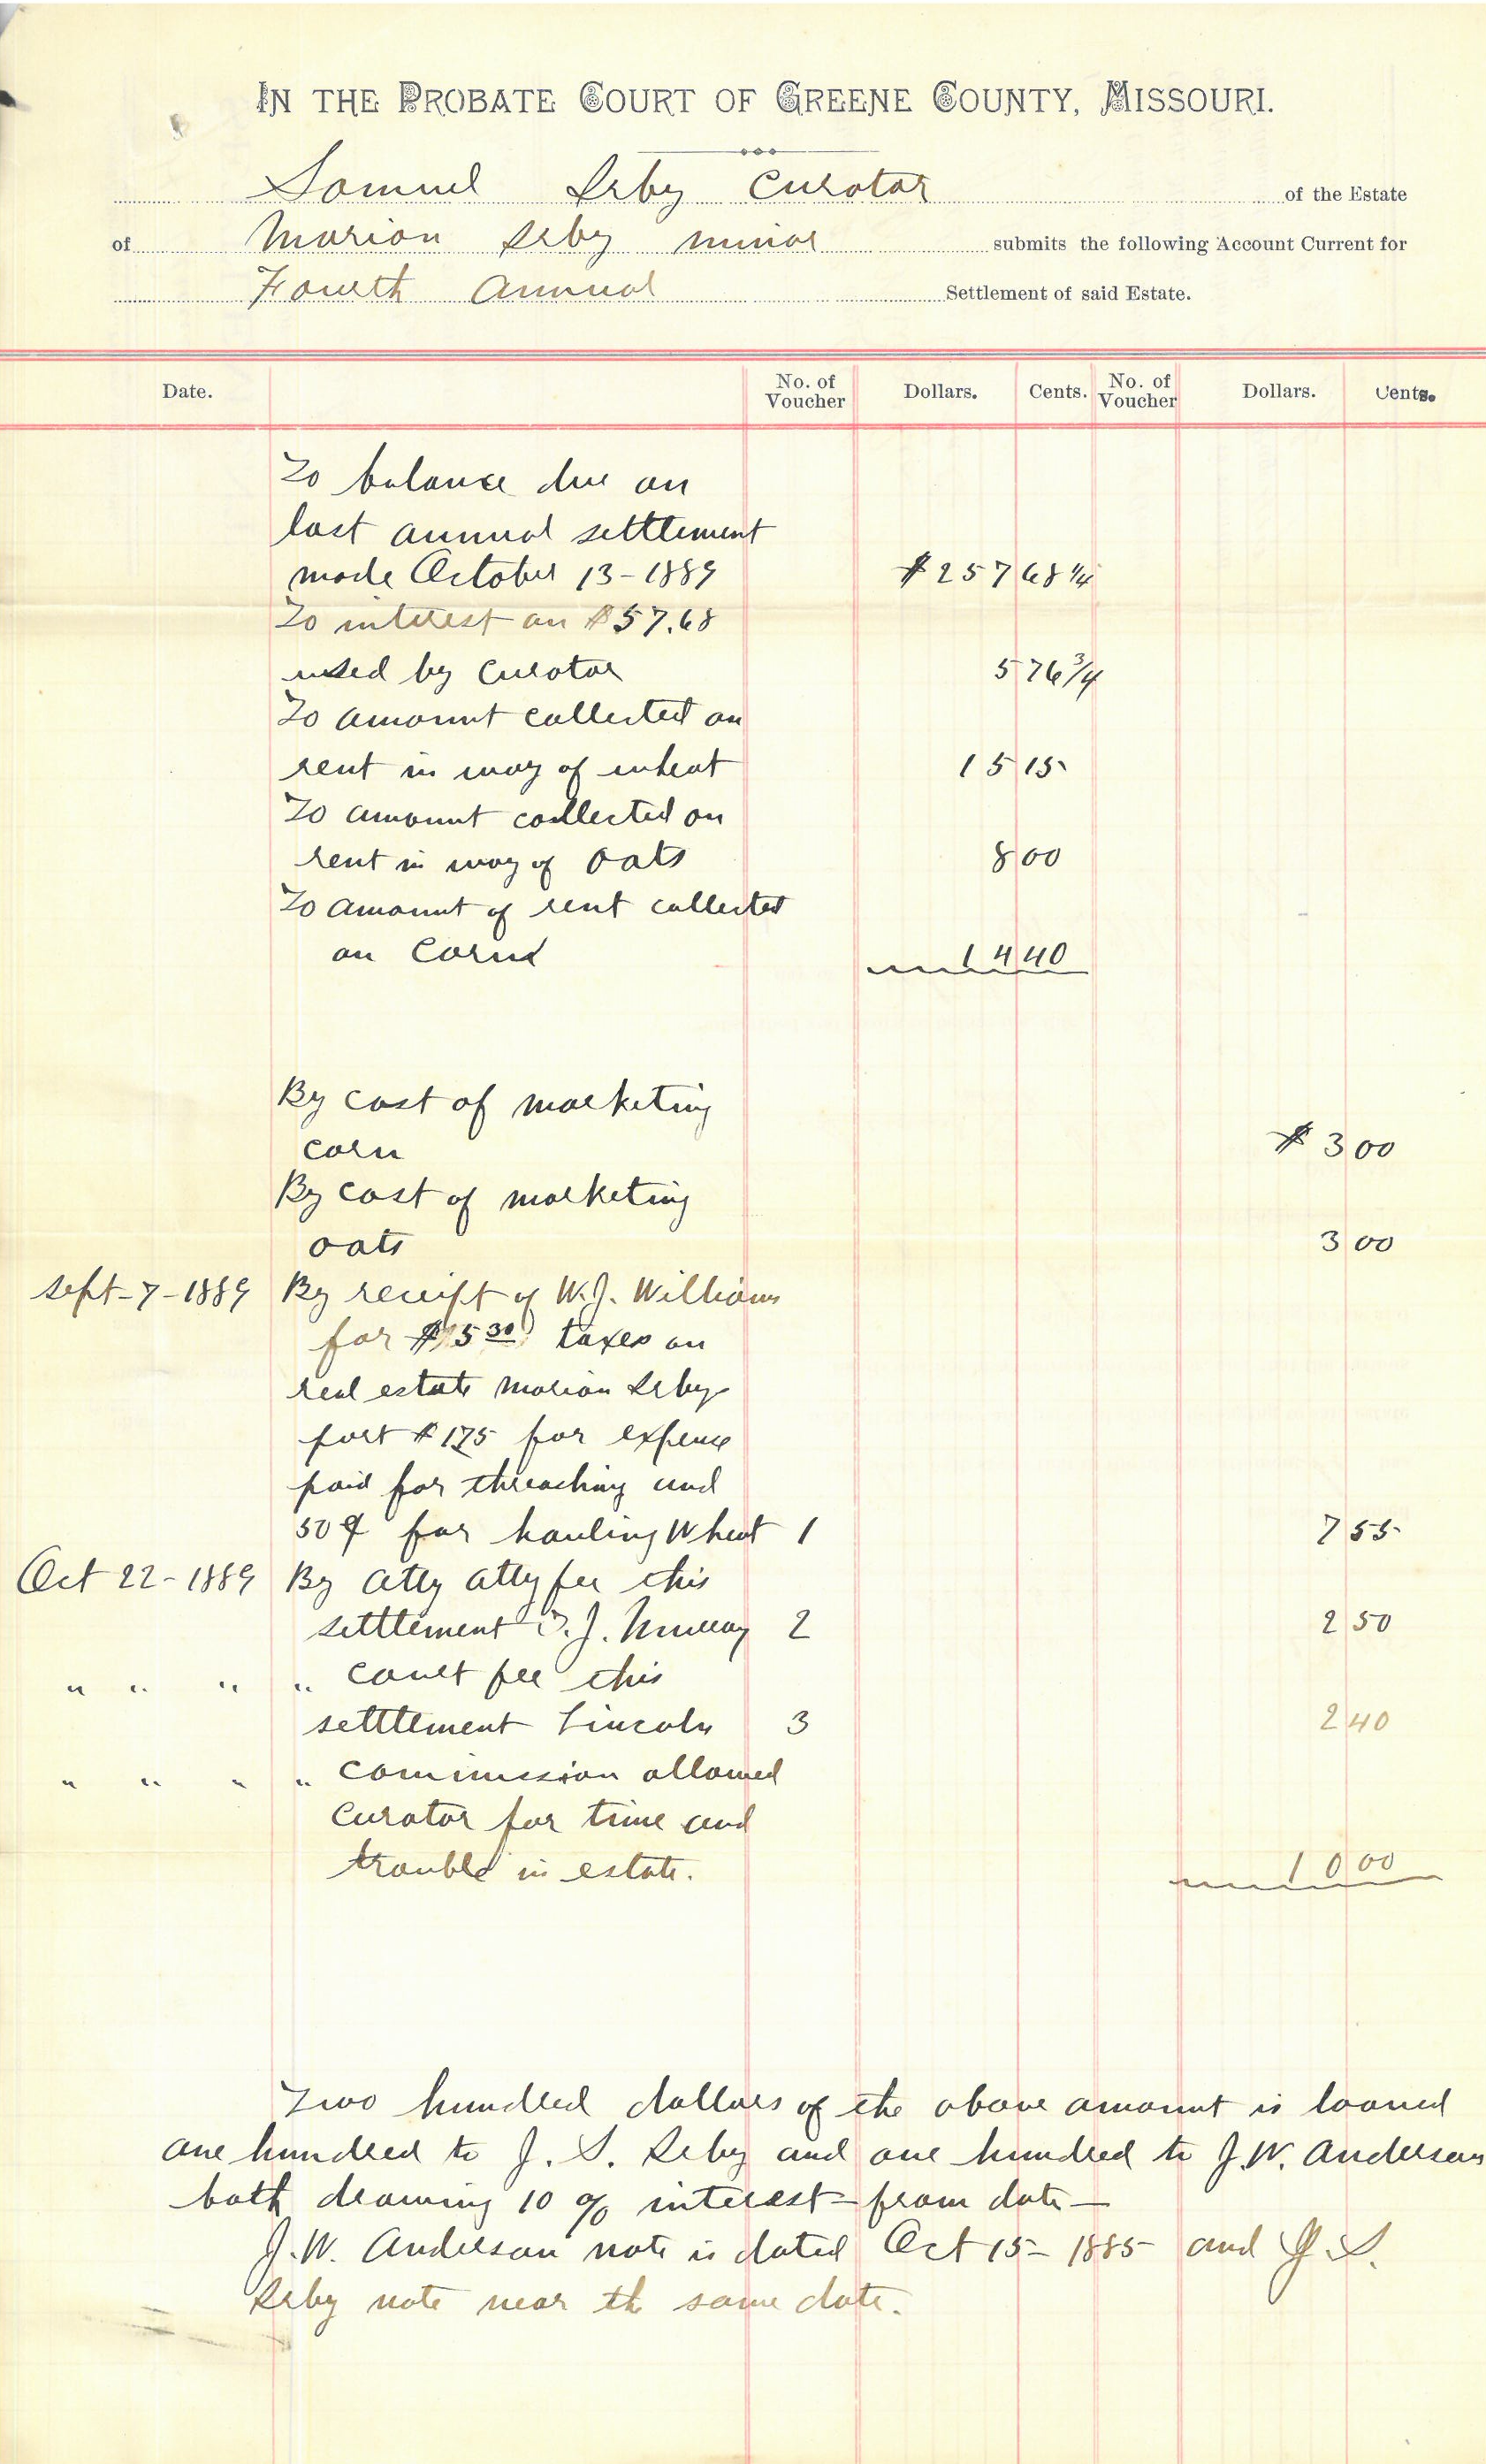 IN THE PROBATE COURT OF GREENE COUNTY, MISSOURI.
Samuel Irby Curator of the Estate
of Marion Irby minor submits the following Account Current for
Fourth Annual Settlement of said Estate.
Date. No. of Voucher Dollars. Cents. No. of Voucher Dollars. Cents.
To balance due on
last annual settlement
made October 13-1889 $257 68 1/4
To interest on $57.68
used by Curator 5 76 3/4
To amount collected on
rent in way of wheat 15 15
To amount collected on
rent in way of oats 8 00
To amount of rent collected
on Corn 14 40
By cost of marketing
corn $3 00
By cost of marketing
oats 3 00
Sept-7-1889 By receipt of W.J. Williams
for $5 30 taxes on
real estate Marion Irby
part $1.75 for expense
paid for threaching and
50¢ for hauling Wheat 1 7 55
Oct 22-1889 By Atty Atty fee this
settlement T.J. Murray 2 2 50
" " " " Court fee this
settlement Lincoln 3 2 40
" " " " Commission allowed
Curator for time and
trouble in estate. 10 00
Two hundred dollars of the above amount is loaned
one hundred to J. S. Irby and one hundred to J.W. Anderson
both drawing 10 % interest from date—
J.W. Anderson note is dated Oct 15-1885 and J.S.
Irby note near th same date.